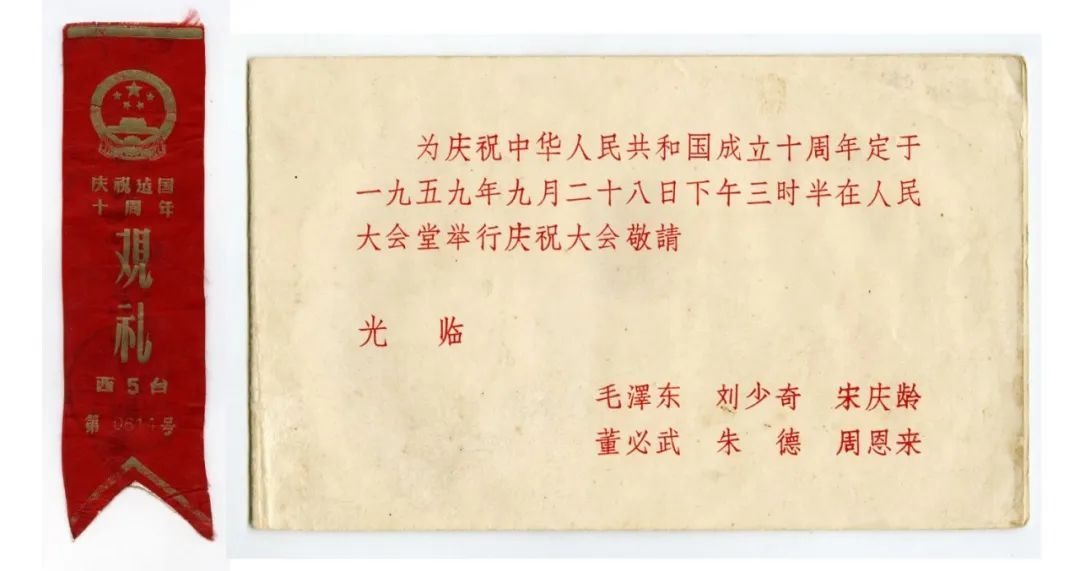 庆祝建国
十周年
观礼
西5台
第0614号
为庆祝中华人民共和国成立十周年定于
一九五九年九月二十八日下午三时半在人民
大会堂举行庆祝大会敬請
光 临
毛澤东 刘少奇 宋庆龄
董必武 朱 德 周恩来